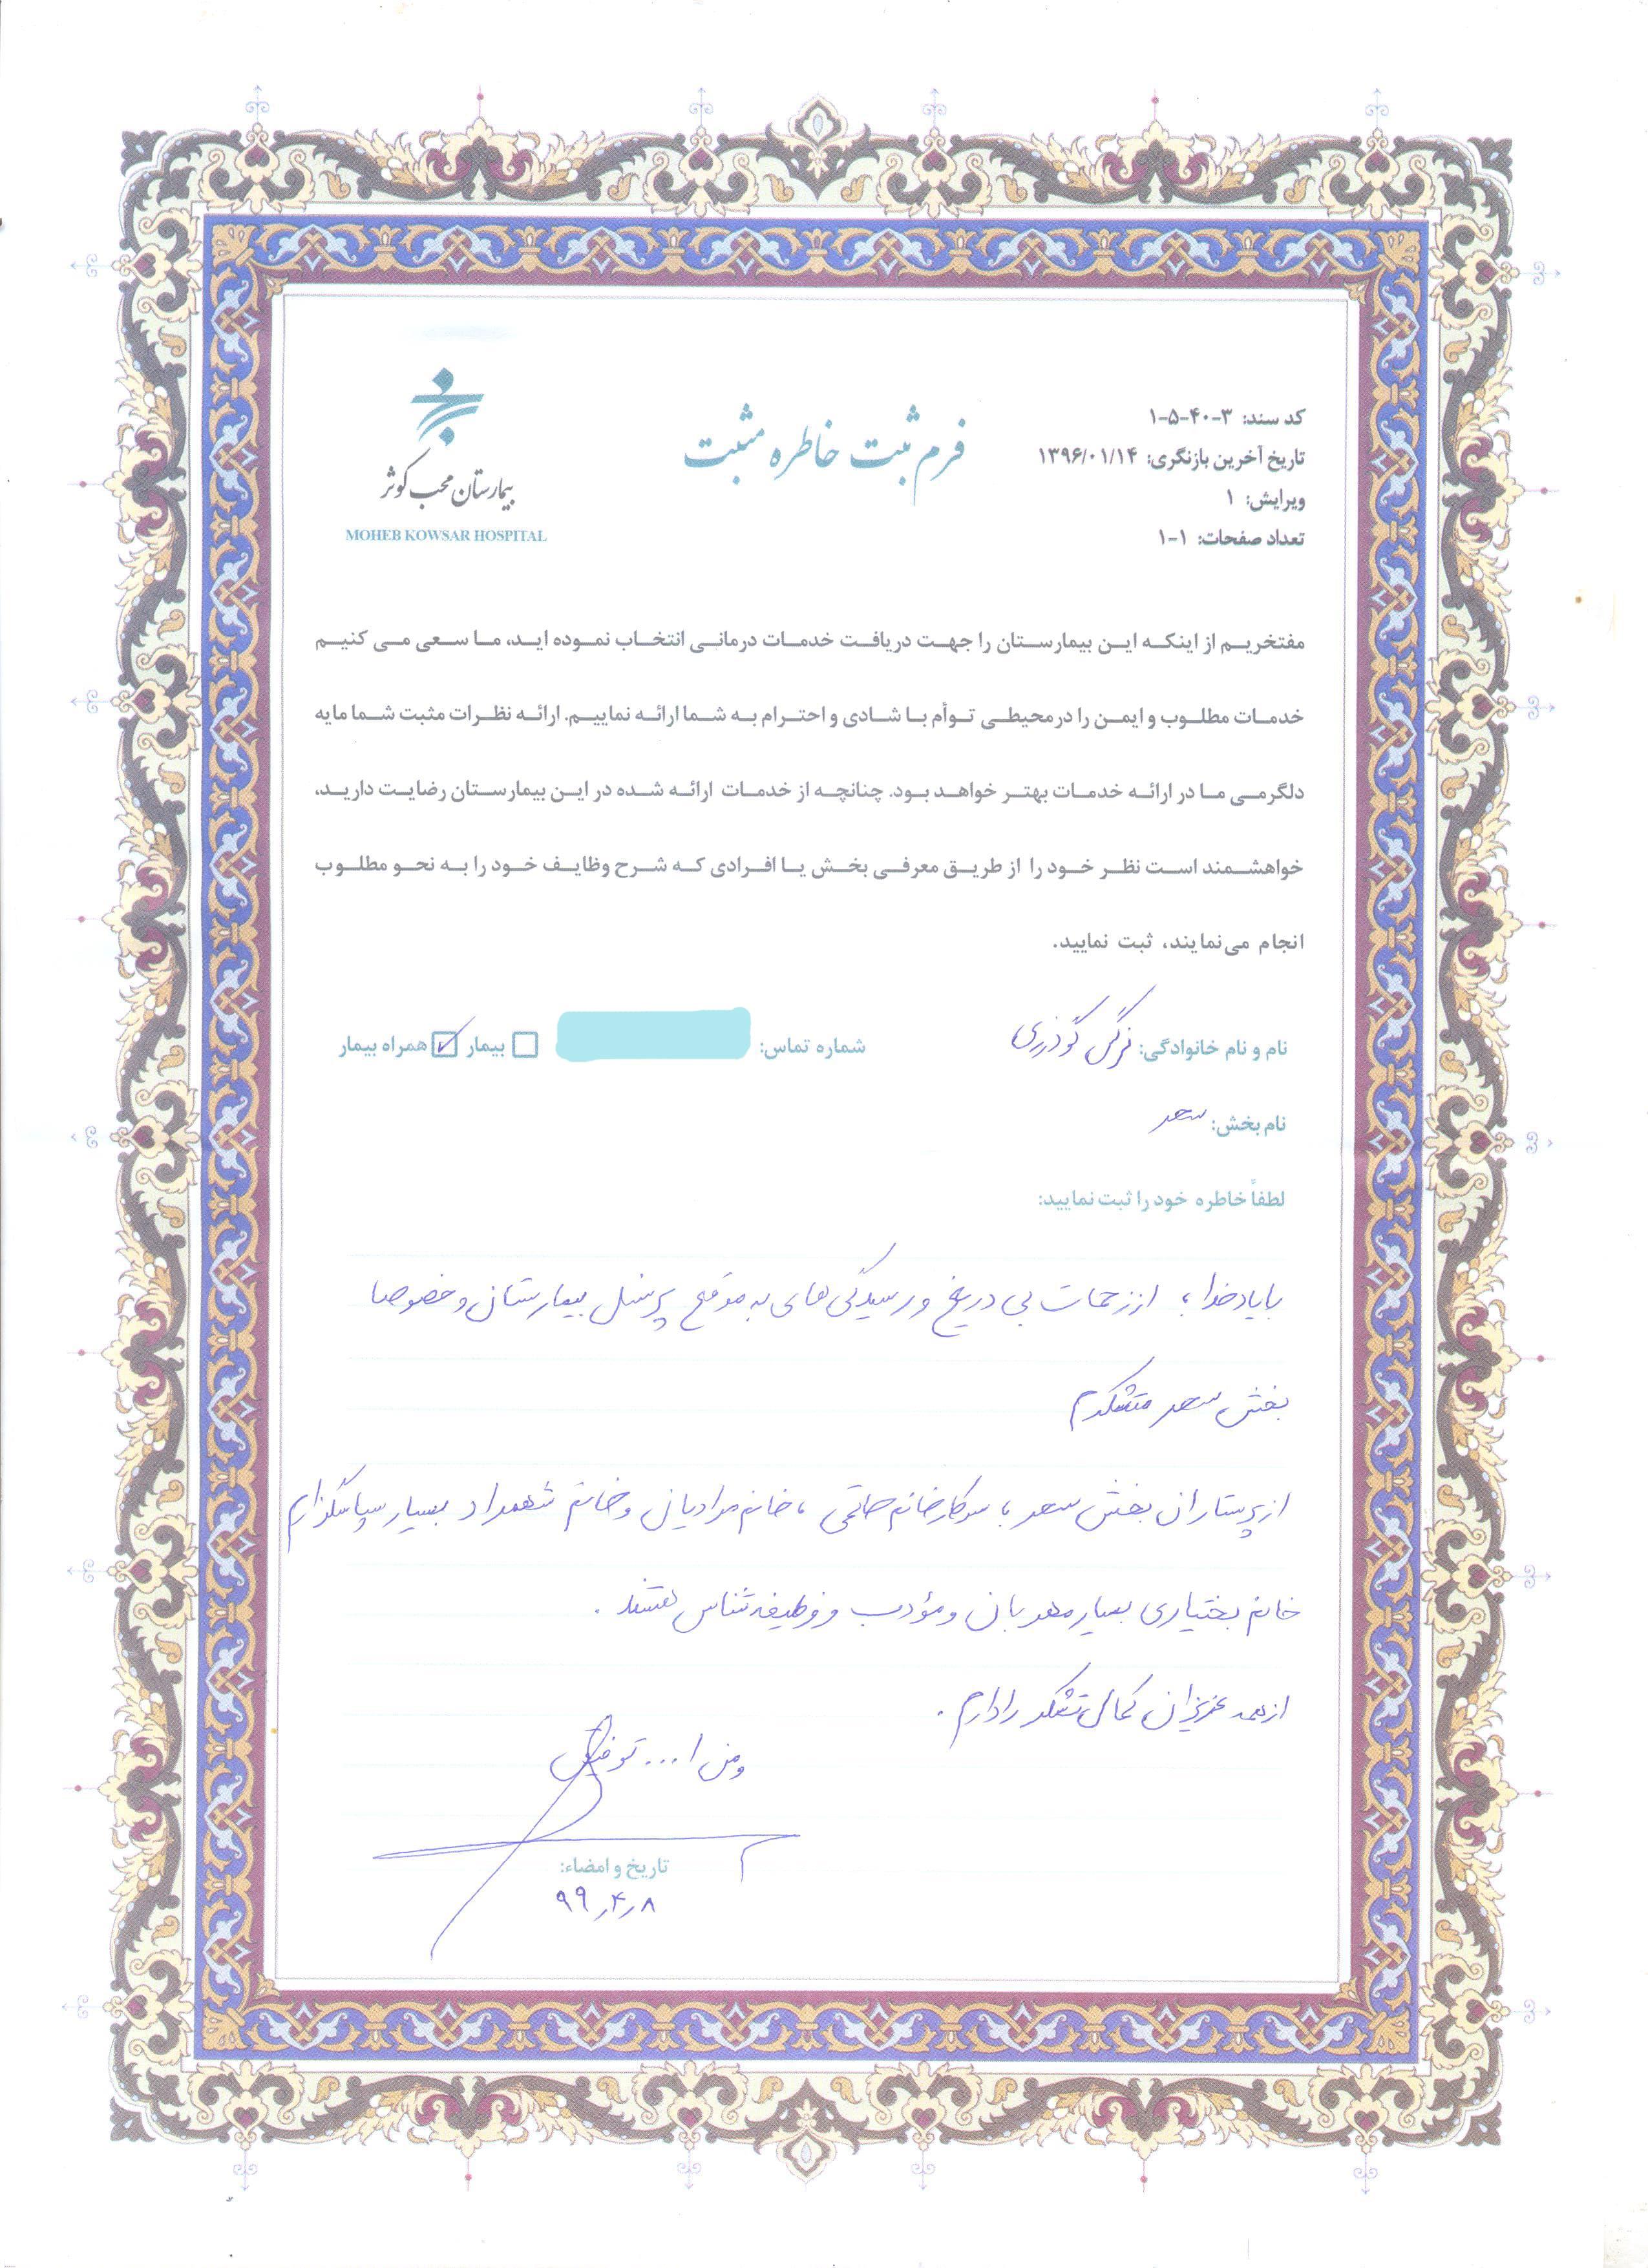 کد سند: ۳-۴۰-۵-۱
تاریخ آخرین بازنگری: ۱۳۹۶/۰۱/۱۴
ویرایش: ۱
تعداد صفحات: ۱-۱
فرم ثبت خاطره مثبت
بیمارستان محب کوثر
MOHEB KOWSAR HOSPITAL
مفتخریم از اینکه این بیمارستان را جهت دریافت خدمات درمانی انتخاب نموده اید، ما سعی می کنیم
خدمات مطلوب و ایمن را در محیطی توأم با شادی و احترام به شما ارائه نماییم. ارائه نظرات مثبت شما مایه
دلگرمی ما در ارائه خدمات بهتر خواهد بود. چنانچه از خدمات ارائه شده در این بیمارستان رضایت دارید،
خواهشمند است نظر خود را از طریق معرفی بخش یا افرادی که شرح وظایف خود را به نحو مطلوب
انجام می‌نمایند، ثبت نمایید.
نام و نام خانوادگی: نرگس گودرزی شماره تماس: بیمار همراه بیمار
نام بخش: سحر
لطفاً خاطره خود را ثبت نمایید:
با یاد خدا، از زحمات بی دریغ و رسیدگی های به موقع پرسنل بیمارستان و خصوصا
بخش سحر متشکرم
از پرستاران بخش سحر، سرکار خانم حاتمی، خانم مرادیان و خانم شهمراد بسیار سپاسگزارم
خانم بختیاری بسیار مهربان و مؤدب و وظیفه شناس هستند.
از همه عزیزان کمال تشکر را دارم.
و من ا... توفیق
تاریخ و امضاء:
۹۹،۴،۸